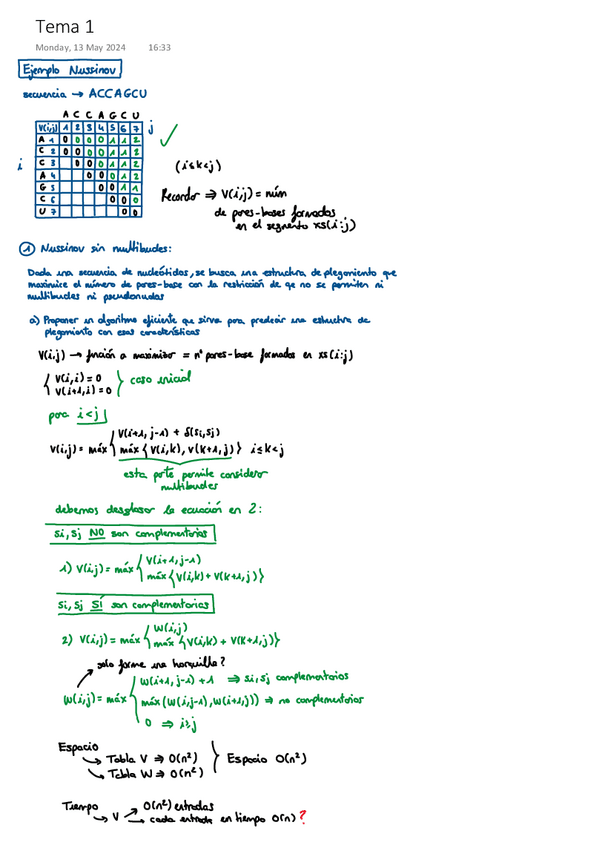 Tema 1
Monday, 13 May 2024 16:33
Ejemplo Nussinov
secuencia → ACCAGCU
A C C A G C U
V(i,j) 1 2 3 4 5 6 7 j
A 1 0 0 0 0 1 1 2
C 2 0 0 0 0 1 1 2
i C 3 0 0 0 1 1 2
A 4 0 0 0 1 2
G 5 0 0 1 1
C 6 0 0 0
U 7 0 0
(i≤k<j)
Recordar ⇒ V(i,j) = núm
de pares-bases formados
en el segmento xs(i:j)
1 Nussinov sin multibucles:
Dada una secuencia de nucleótidos, se busca una estructura de plegamiento que
maximice el número de pares-base con la restricción de qe no se permiten ni
multibucles ni pseudonudos
a) Proponer un algoritmo eficiente que sirva para predecir una estructura de
plegamiento con esas características
V(i,j) → función a maximizar = nº pares-base formados en xs(i:j)
V(i,i) = 0
V(i+1,i) = 0 } caso inicial
para i<j
V(i+1, j-1) + δ(si,sj)
V(i,j) = máx { máx { V(i,k), V(k+1,j)} i≤k<j
esta parte permite considerar
multibucles
debemos desglosar la ecuación en 2:
si, sj NO son complementarios
1) V(i,j) = máx { V(i+1,j-1)
máx {V(i,k) + V(k+1,j)}
si, sj SÍ son complementarios
2) V(i,j) = máx { W(i,j)
máx {V(i,k) + V(k+1,j)}
solo forme una horquilla?
W(i+1, j-1) + 1 ⇒ si,sj complementarios
W(i,j) = máx { máx (W(i,j-1), W(i+1,j)) ⇒ no complementarios
0 ⇒ i≥j
Espacio
→ Tabla V ⇒ O(n²)
→ Tabla W ⇒ O(n²) } Espacio O(n²)
Tiempo
→ V → O(n²) entradas
→ cada entrada en tiempo O(n) ?